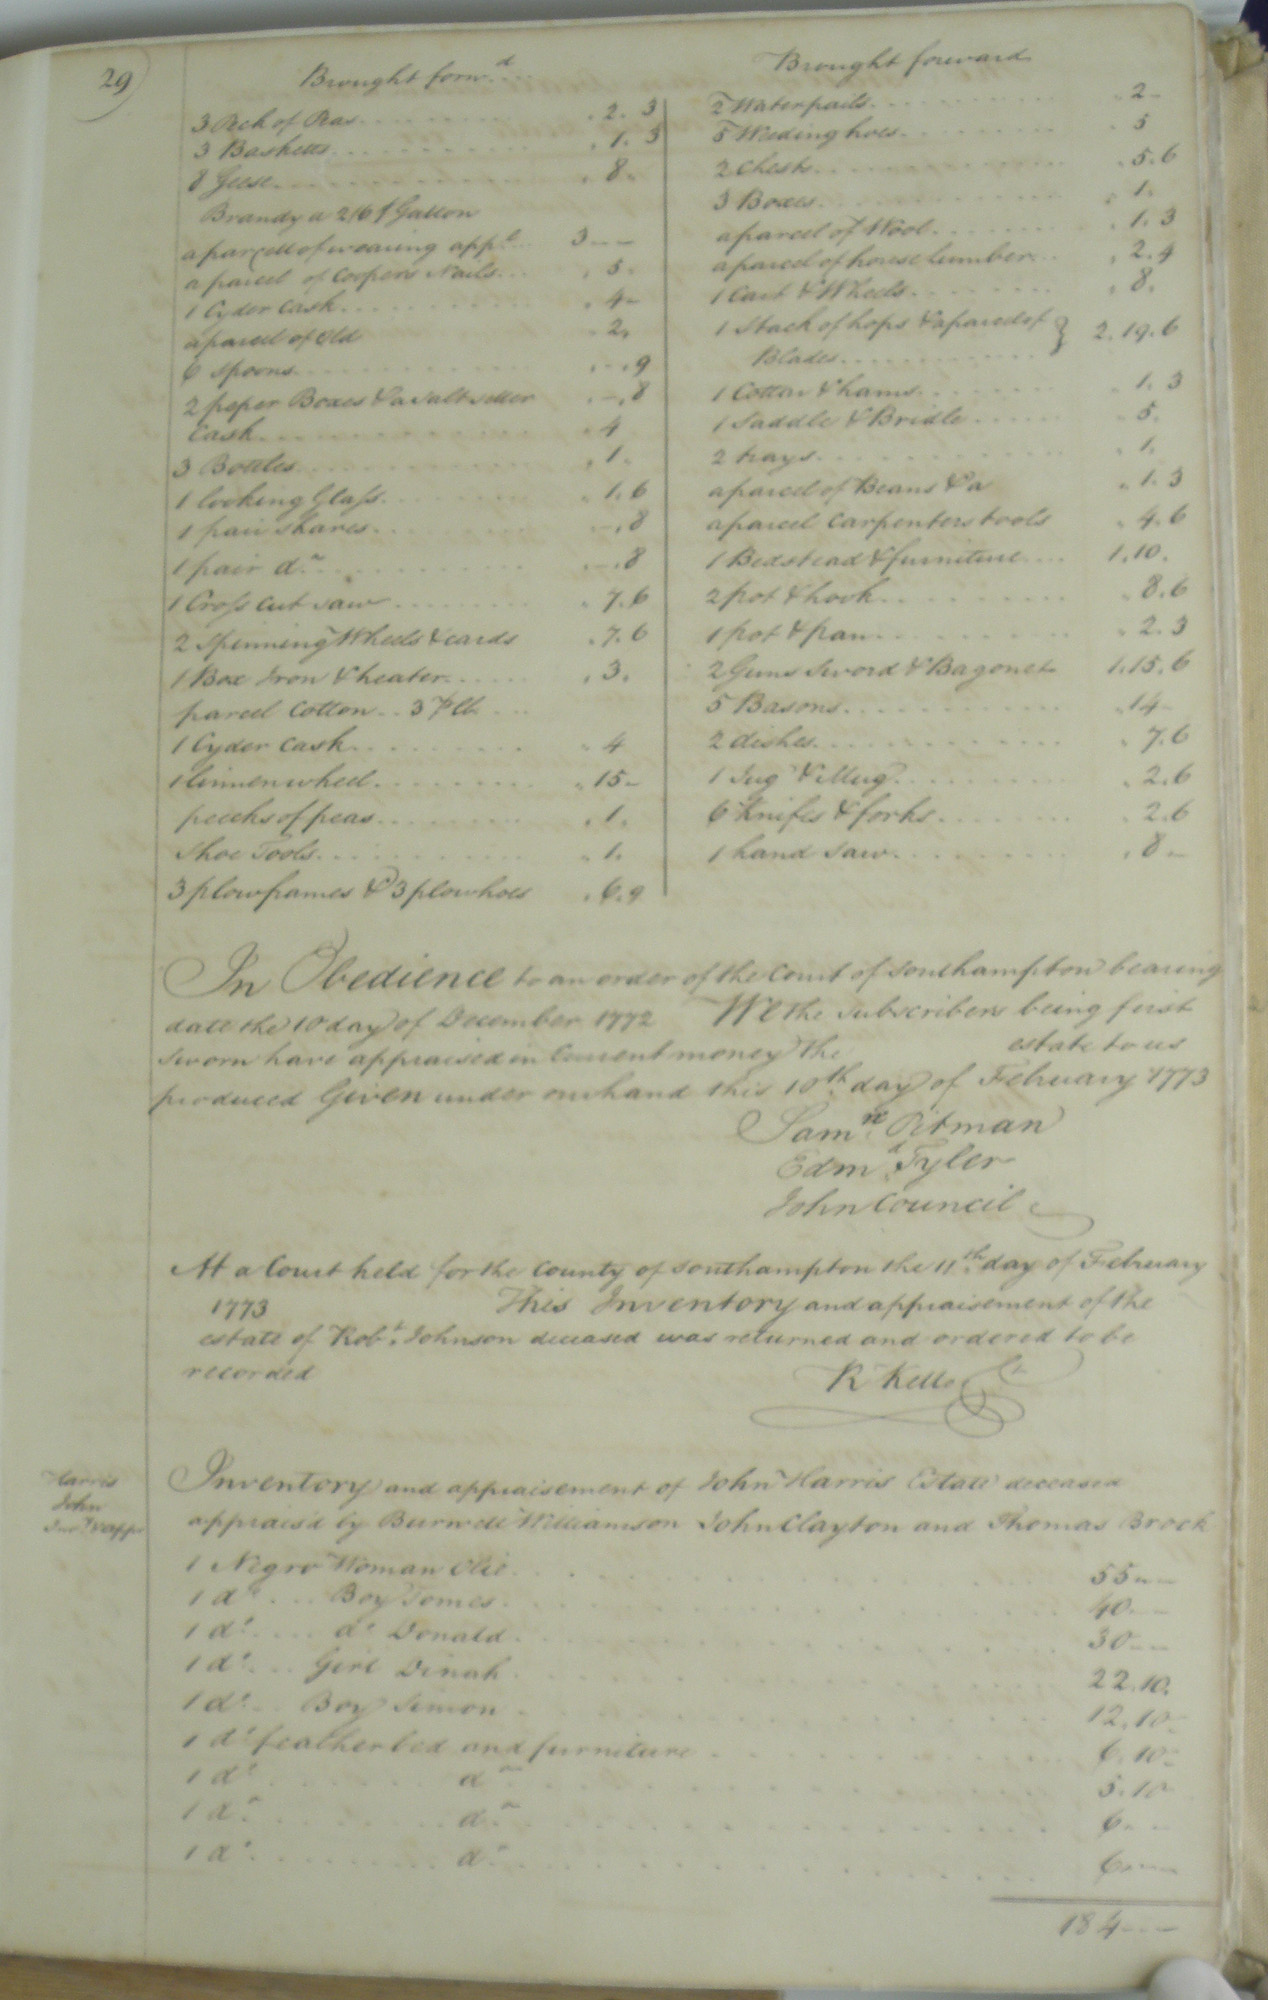 29
Brought forwd
3 Peck of Peas . 2. 3
3 Basketts . 1. 3
8 Geese . 8.
Brandy a 2/6 P Gallon
a parcell of wearing appl 3 - -
a parcel of Coopers Nails . 5.
1 Cyder Cask . 4 -
a parcel of old . 2.
6 Spoons . - . 9
2 peper Boxes & a Salt seller . - . 8
Cask . 4
3 Bottles . 1.
1 looking Glass . 1. 6
1 pair Shares . - . 8
1 pair do . - . 8
1 Cross Cut Saw . 7. 6
2 Spinning Wheels & cards . 7. 6
1 Box Iron & heater . 3.
parcel Cotton 3d P lb
1 Cyder Cask . 4
1 linnen wheel . 15 -
pecks of peas . 1.
Shoe Tools . 1.
3 plow frames & 3 plow hoes . 6. 9
Brought forward
2 Water pails . 2 -
5 Weeding hoes . 5
2 Chests . 5. 6
3 Boxes . 1.
a parcel of Wool . 1. 3
a parcel of house lumber . 2. 4
1 Cart & Wheels . 8.
1 Stack of hops & a parcel of } 2. 19. 6
Blades
1 Cotton & hams . 1. 3
1 Saddle & Bridle . 5.
2 trays . 1.
a parcel of Beans &a . 1. 3
a parcel Carpenters tools . 4. 6
1 Bedstead & furniture 1. 10.
2 pot & hook . 8. 6
1 pot & pan . 2. 3
2 Guns Sword & Bagonet 1. 15. 6
5 Basons . 14 -
2 dishes . 7. 6
1 Jug & Mug . 2. 6
6 Knifes & forks . 2. 6
1 hand Saw . 8 -
In Obedience to an order of the Court of Southampton bearing
date the 10 day of December 1772 We the Subscribers being first
Sworn have appraised in Current money the estate to us
produced Given under our hand this 10th day of February 1773
Saml Pitman
Edmd Tyler
John Council
At a Court held for the County of Southampton the 11th day of February
1773 This Inventory and appraisement of the
estate of Robt Johnson deceased was returned and ordered to be
recorded
R Kello Ct
Harris
John
Invy & appt
Inventory and appraisement of John Harris Estate deceased
apprais'd by Burwell Williamson John Clayton and Thomas Brock
1 Negro Woman Olie 55 - -
1 do Boy Tomes 40 - -
1 do do Donald 30 - -
1 do Girl Dinah 22. 10.
1 do Boy Simon 12. 10 -
1 do feather bed and furniture 6. 10 -
1 do do 5. 10
1 do do 6 - -
1 do do 6 - -
184 - -